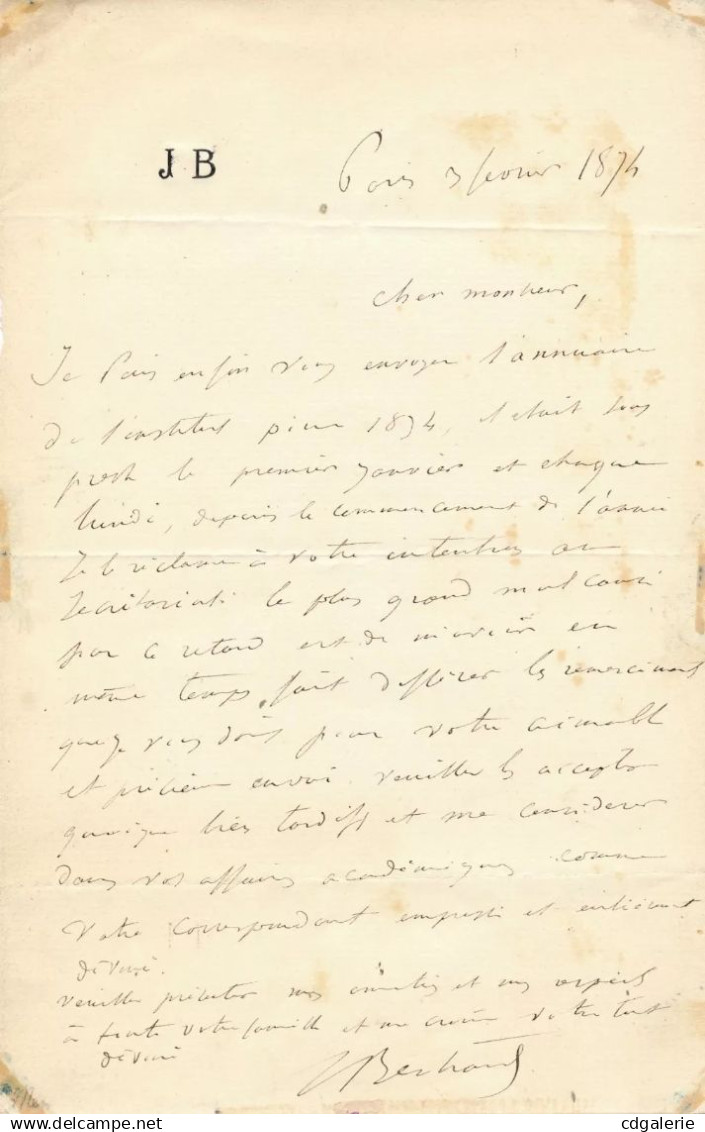 J B
Paris 3 février 1874
cher monsieur,
Je puis enfin vous envoyer l'annuaire
de l'institut pour 1874, il était
prêt le premier janvier et chaque
lundi, depuis le commencement de l'année
Je le réclame à votre intention au
secrétariat. le plus grand mal causé
par ce retard est de m'avoir en
même temps fait différer les remerciments
que je vous dois pour votre aimable
et précieux envoi. veuillez les accepter
quoique bien tardifs et me considérer
dans vos affaires académiques comme
votre correspondant empressé et entièrement
dévoué.
veuillez présenter mes amitiés et mes respects
à toute votre famille et me croire votre tout
dévoué
J Bertrand
cdgalerie